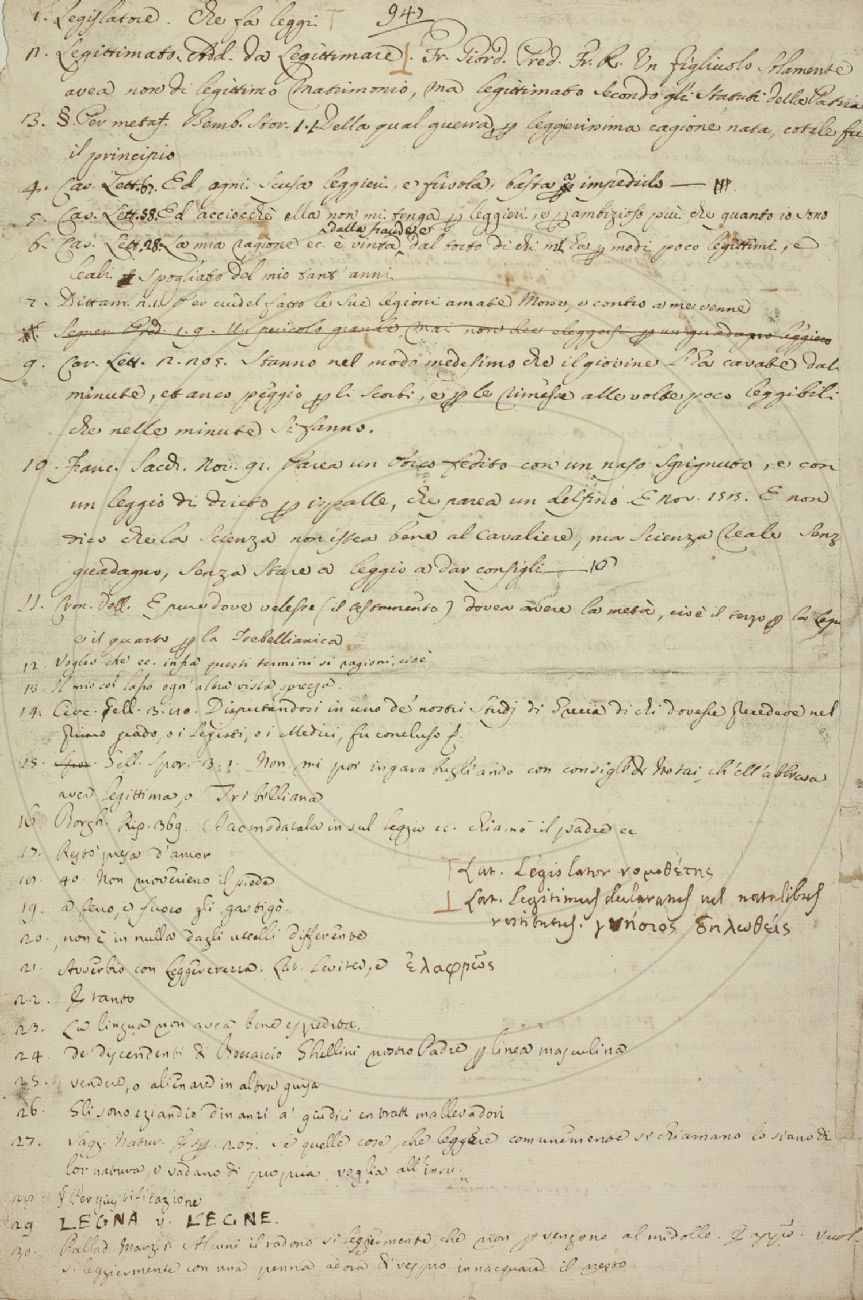 947
1. Legislatore. Che fa leggi. T
n. Legittimato. Add. da Legittimare ⊥. Fr. Giord. Pred. Fr. R. Un figliuolo solamente
avea non di legittimo Matrimonio, ma legittimato secondo gli Statuti della Patria
13. §. Per metaf. Bemb. Stor. 1.1. Della qual guerra, leggerissima cagione nata, cotale fu
il principio
4. Cav. Lett. 67. Ed ogni scusa leggieri, e frivola, basta impedirlo —
5. Cav. Lett. 58. Ed acciocchè ella non mi tenga leggieri, e ambizioso più che quanto io sono
6. Cav. Lett. 28. La mia ragione ec. è vinta dalla fraude, e dal torto di chi modi poco legittimi, e
leali spogliato del mio tant' anni
7. Dittam. Per cui del fatto le sue legioni amate Mosse, e contro a me venne
Segner. Pred. 1. 9. Un pericolo grande, mai non dee eleggersi un guadagno leggiero
9. Car. Lett. 2. 205. Stanno nel modo medesimo che il giovine l'ha cavate dal
minute, et anco peggio li scorbi, e le rimesse alle volte poco leggibili
che nelle minute si fanno.
10. Franc. Sacch. Nov. 91. Parea un Porco fedito con un naso sgrignuto, e con
un leggio di dietro ispalle, che parea un delfino. E Nov. E non
dico che la scienza non istea bene al Cavaliere, ma scienza reale senz
guadagno, senza stare a leggio a dar consigli
11. Cron. Vell. E pure dove valesse (il testamento) dovea avere la metà, cioè il terzo la legi
e il quarto la Trebellianica
12. Voglio che ec. infra questi termini si ragioni, cioè
13. Il mio cor lasso ogn' altra vista sprezza.
14. Circ. Gell. 3. 110. Disputandosi in uno de' nostri Studj di Grecia di chi dovesse precedere nel
primo grado, o i Legisti, o i Medici, fu concluso
15. Gell. Sport. 3. 1. Non mi por in gara pigliando con consigli de' Notai, ch' ell' abbia
aver legittima, o Tribelliana
16. Borgh. Rip. 369. Accomodatala in sul leggio ec. chiamò il padre ec
17. Restò presa d'amor
18. 40. Non moverieno il piede
19. a ferro, e fuoco gli gastigò.
20. non è in nulla dagli uccelli differente
21. Avverbio con Leggerezza. Lat. Leviter, e ἐλαφρῶς
22. tanto
23. La lingua non avea bene espedita.
24. de' discendenti di Boccaccio Ghellini nostro Padre linea masculina
25. vendere, o alienare in altra guisa
26. Gli sono eziandio dinanzi a' giudici entratt mallevadori
27. Sagg. Natur. Esp. 207. Se quelle cose, che leggiere comunemente si chiamano lo siano di
lor natura, e vadano di propria voglia all' insù.
29 LEGNA v. LEGNE.
30. Pallad. Marz. Alcuni il radono sì leggiermente che non pervengono al midollo. E appr. Vuol
si leggiermente con una penna innacquare il nesto
T Lat. Legislator νομοθέτης
⊥ Lat. Legitimus declaratus vel natalibus
restitutus. γνήσιος δηλωθείς